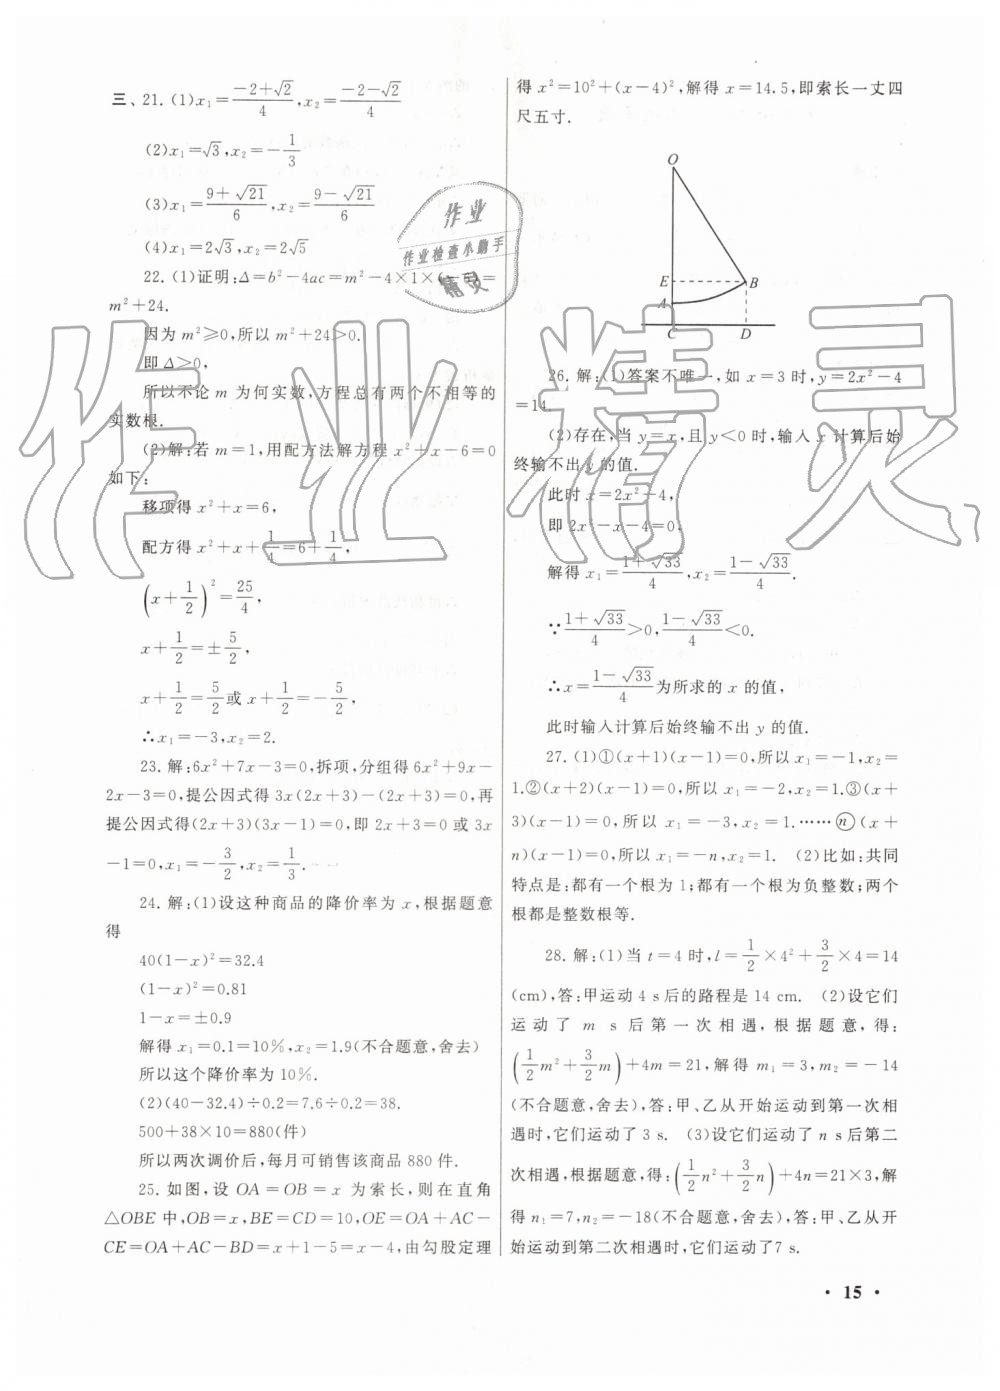 三、21. (1)x₁=(-2+√2)/4,x₂=(-2-√2)/4
(2)x₁=√3,x₂=-1/3
(3)x₁=(9+√21)/6,x₂=(9-√21)/6
(4)x₁=2√3,x₂=2√5
22. (1)证明:Δ=b²-4ac=m²-4×1×(-6)=
m²+24.
因为 m²≥0,所以 m²+24>0.
即 Δ>0,
所以不论 m 为何实数,方程总有两个不相等的
实数根.
(2)解:若 m=1,用配方法解方程 x²+x-6=0
如下:
移项得 x²+x=6,
配方得 x²+x+1/4=6+1/4,
(x+1/2)²=25/4,
x+1/2=±5/2,
x+1/2=5/2或 x+1/2=-5/2,
∴x₁=-3,x₂=2.
23. 解:6x²+7x-3=0,拆项,分组得 6x²+9x-
2x-3=0,提公因式得 3x(2x+3)-(2x+3)=0,再
提公因式得(2x+3)(3x-1)=0,即 2x+3=0 或 3x
-1=0,x₁=-3/2,x₂=1/3.
24. 解:(1)设这种商品的降价率为 x,根据题意
得
40(1-x)²=32.4
(1-x)²=0.81
1-x=±0.9
解得 x₁=0.1=10%,x₂=1.9(不合题意,舍去)
所以这个降价率为 10%.
(2)(40-32.4)÷0.2=7.6÷0.2=38.
500+38×10=880(件)
所以两次调价后,每月可销售该商品 880 件.
25. 如图,设 OA=OB=x 为索长,则在直角
△OBE 中,OB=x,BE=CD=10,OE=OA+AC-
CE=OA+AC-BD=x+1-5=x-4,由勾股定理
得 x²=10²+(x-4)²,解得 x=14.5,即索长一丈四
尺五寸.
O
E
B
A
C
D
26. 解:(1)答案不唯一,如 x=3 时,y=2x²-4
=14.
(2)存在,当 y=x,且 y<0 时,输入 x 计算后始
终输不出 y 的值.
此时 x=2x²-4,
即 2x²-x-4=0.
解得 x₁=(1+√33)/4,x₂=(1-√33)/4.
∵(1+√33)/4>0,(1-√33)/4<0.
∴x=(1-√33)/4为所求的 x 的值,
此时输入计算后始终输不出 y 的值.
27. (1)①(x+1)(x-1)=0,所以 x₁=-1,x₂=
1.②(x+2)(x-1)=0,所以 x₁=-2,x₂=1.③(x+
3)(x-1)=0,所以 x₁=-3,x₂=1.……ⓝ(x+
n)(x-1)=0,所以 x₁=-n,x₂=1. (2)比如:共同
特点是:都有一个根为 1;都有一个根为负整数;两个
根都是整数根等.
28. 解:(1)当 t=4 时,l=1/2×4²+3/2×4=14
(cm),答:甲运动 4 s后的路程是 14 cm. (2)设它们
运动了 m s 后第一次相遇,根据题意,得:
(1/2m²+3/2m)+4m=21,解得 m₁=3,m₂=-14
(不合题意,舍去),答:甲、乙从开始运动到第一次相
遇时,它们运动了 3 s. (3)设它们运动了 n s后第二
次相遇,根据题意,得:(1/2n²+3/2n)+4n=21×3,解
得 n₁=7,n₂=-18(不合题意,舍去),答:甲、乙从开
始运动到第二次相遇时,它们运动了7 s.
· 15 ·
作业
作业检查小助手
精灵
作业精灵